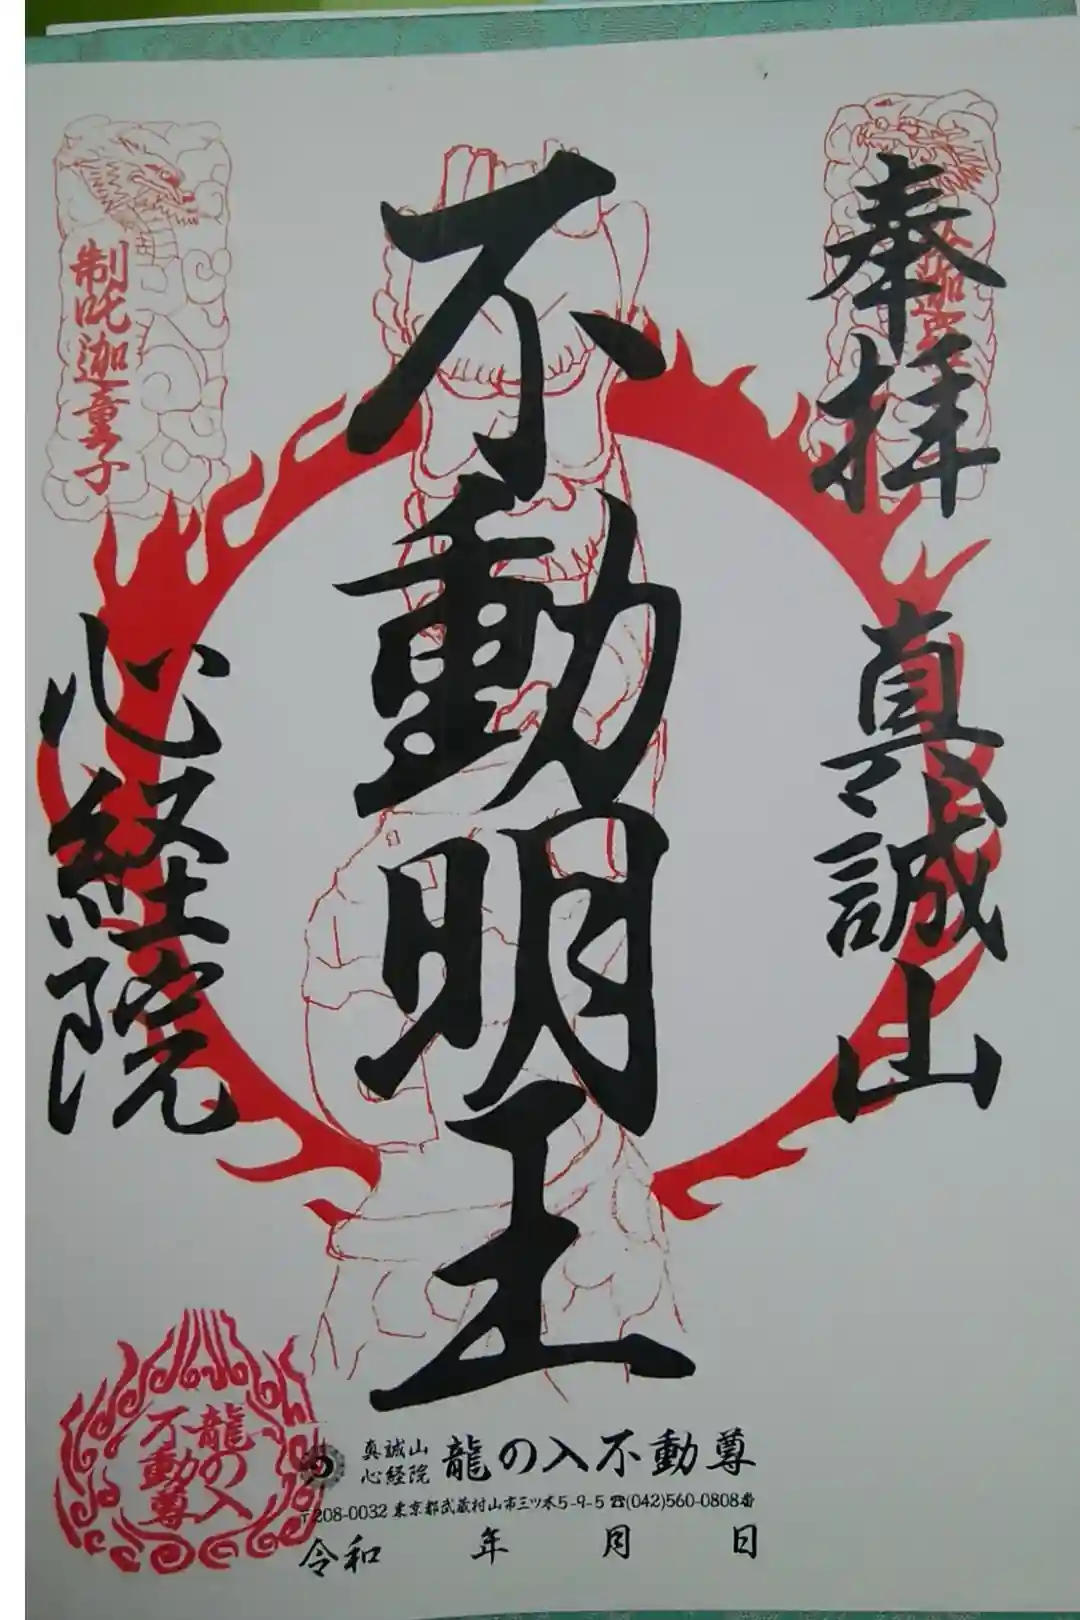 奉拝
真誠山
不動明王
心経院
制吒迦童子
龍の入
不動尊
真誠山
心経院
龍の入不動尊
〒208-0032 東京都武蔵村山市三ツ木5-9-5 ☎(042)560-0808番
令和 年 月 日